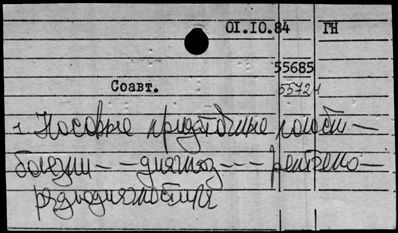 01.10.84 ГН
55685
55724
Соавт.
1. Носовые придаточные полости—
болезни--диагноз---рентгено—
радиодиагностика